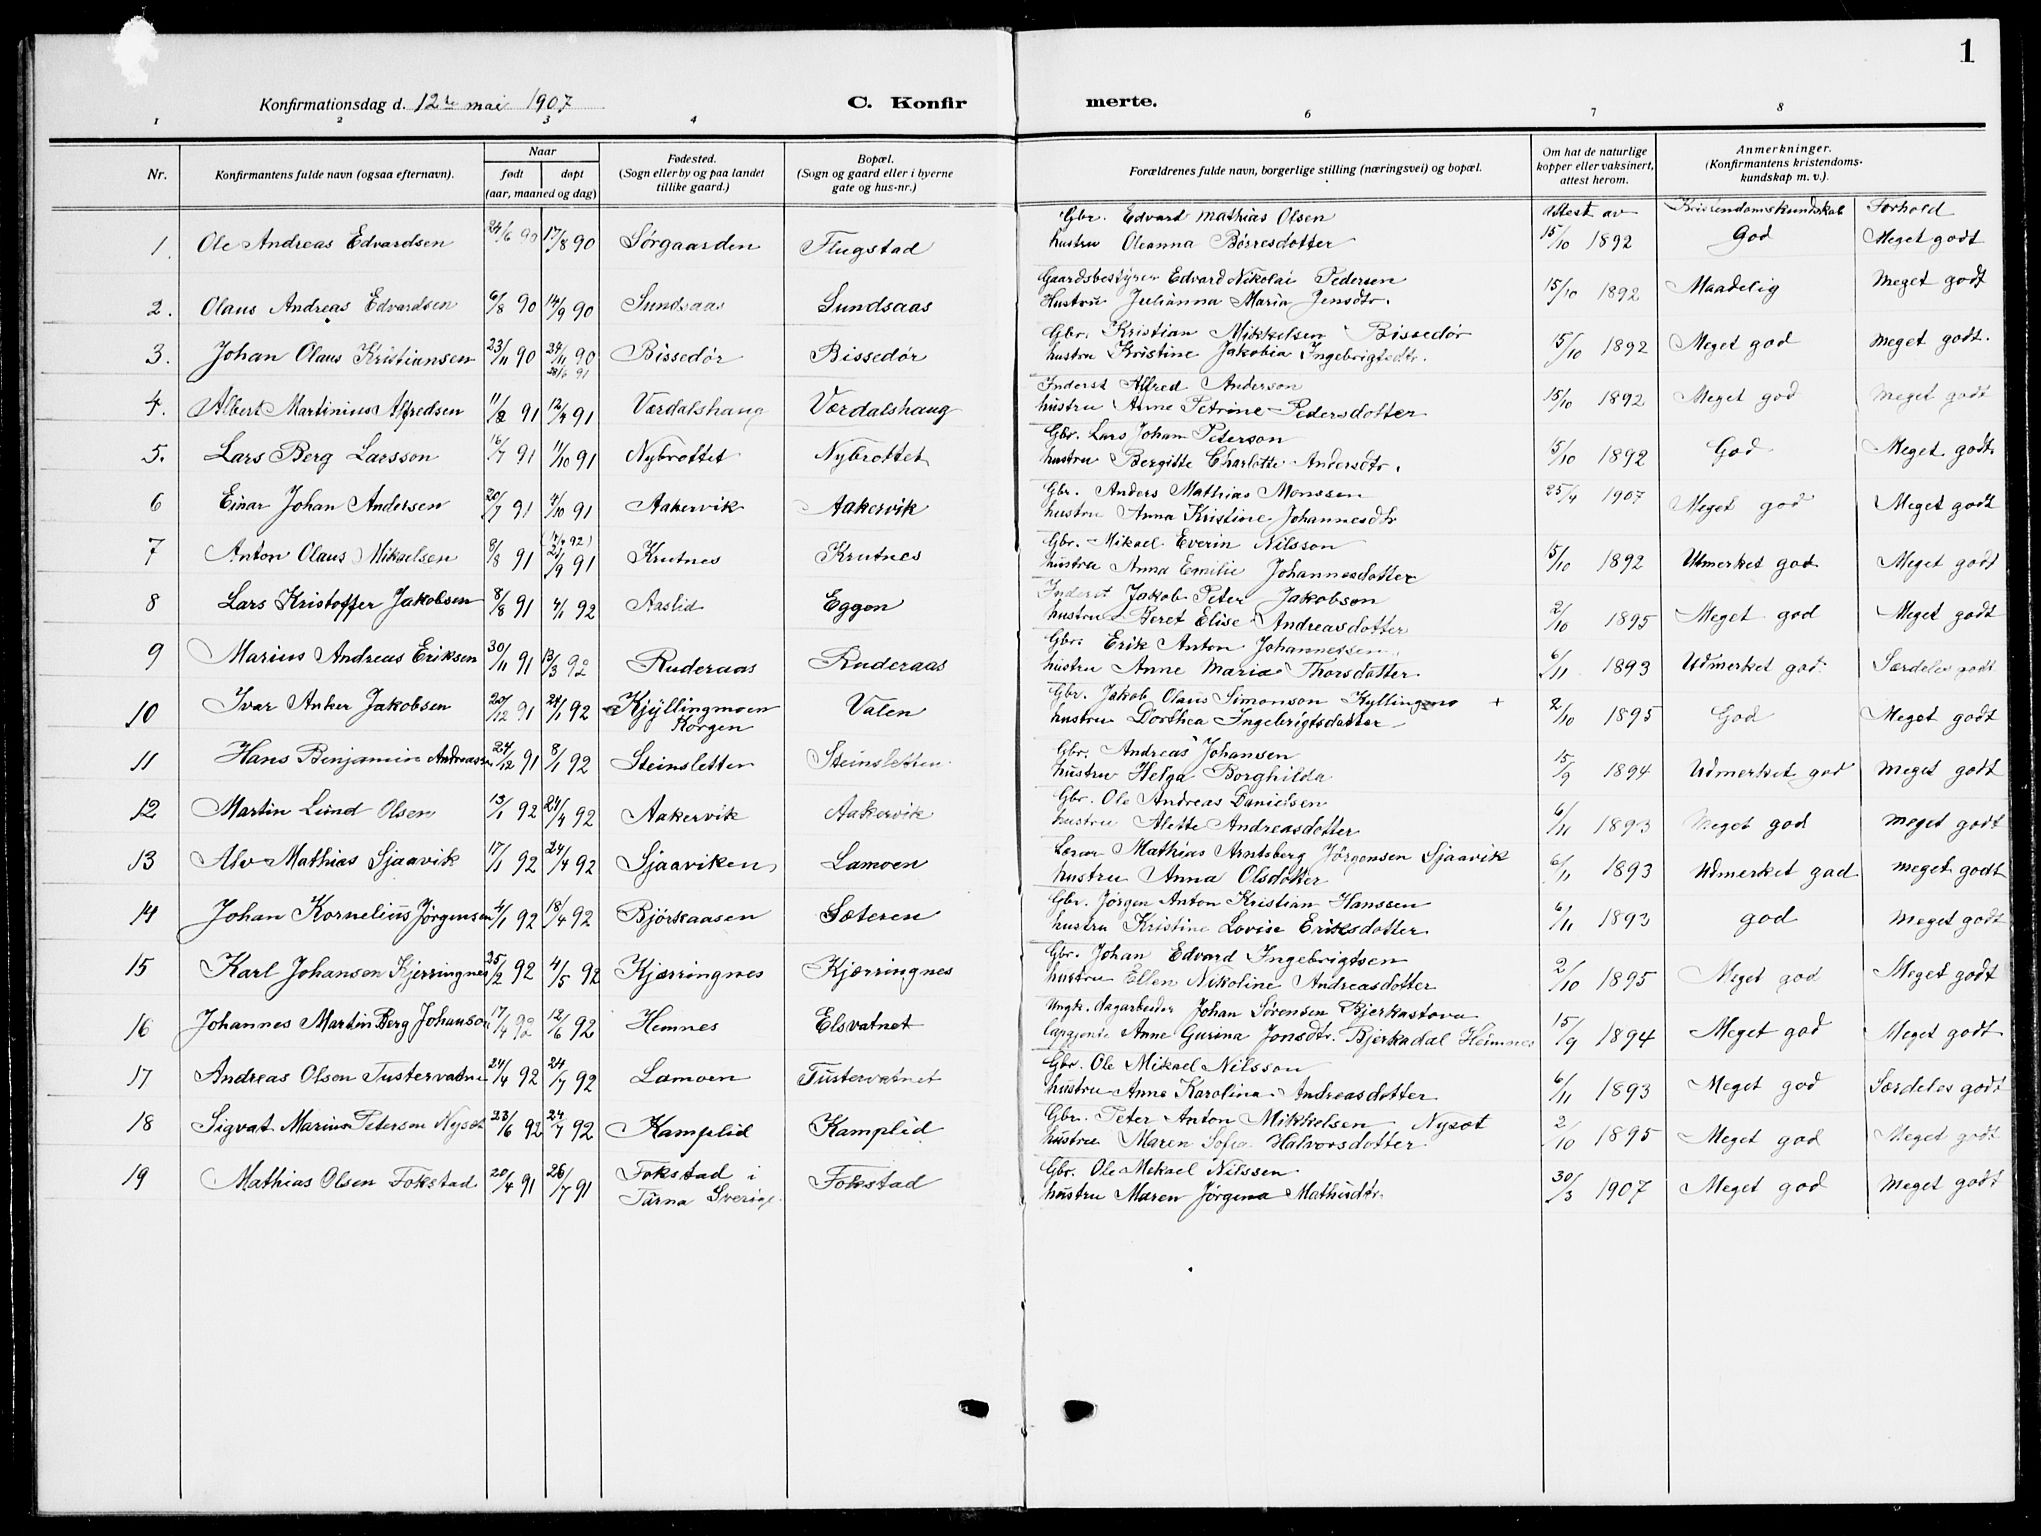 1
Konfirmationsdag d. 12te mai 1907 C. Konfir merte.
1 2 3 4 6 7 8
Nr. Konfirmantens fulde navn (ogsaa efternavn). Naar født døpt (aar, maaned og dag) Fødested. (Sogn eller by og paa landet tillike gaard.) Bopæl. (Sogn og gaard eller i byerne gate og hus-nr.) Forældrenes fulde navn, borgerlige stilling (næringsvei) og bopæl. Om hat de naturlige kopper eller vaksinert, attest herom. Anmerkninger. (Konfirmantens kristendoms-kundskap m. v.).
Attest av Kristendomskundskab Forhold
1. Ole Andreas Edvardsen 24/6 90 17/8 90 Sørgaarden Flugstad Gbr. Edvard Mathias Olsen
hustru Oleanna Børresdotter 15/10 1892 God Meget godt
2. Olaus Andreas Edvardsen 6/8 90 14/9 90 Sundsaas Sundsaas Gaardsbestyrer Edvard Nikolai Pedersen
Hustru Julianna Maria Jensdtr. 15/10 1892 Maadelig Meget godt
3. Johan Olaus Kristiansen 23/11 90 24/11 90 Bissedør Bissedør Gbr. Kristian Mikkelsen Bissedør
hustru Kristine Jakobia Ingebrigtsdtr. 15/10 1892 Meget god Meget godt.
4. Albert Martinius Alfredsen 11/2 91 12/4 91 Værdalshaug Værdalshaug Inderst Alfred Anderson
hustru Anne Petrine Pedersdotter 15/10 1892 Meget god Meget godt
5. Lars Berg Larsson 16/7 91 11/10 91 Nybrottet Nybrottet Gbr. Lars Johan Peterson
hustru Bergitte Charlotte Andersdtr. 15/10 1892 God Meget godt
6 Einar Johan Andersen 20/7 91 4/10 91 Aakervik Aakervik Gbr. Anders Mathias Monssen
hustru Anna Kristine Johannesdtr 25/4 1907 Meget god Meget godt
7 Anton Olaus Mikaelsen 8/8 91 21/9 91 Krutnes Krutnes Gbr. Mikael Everin Nilsson
hustru Anna Emilie Johannesdotter 15/10 1892 Udmerket god Meget godt
8 Lars Kristoffer Jakobsen 8/8 91 4/1 92 Aaslid Eggen Inderst Jakob Peter Jakobson
hustru Beret Elise Andreasdotter 2/10 1895 Meget god Meget godt
9 Marius Andreas Eriksen 30/11 91 13/3 92 Ruderaas Ruderaas Gbr. Erik Anton Johannessen
hustru Anne Maria Thorsdotter 6/11 1893 Udmerket god Særdeles godt
10 Ivar Anker Jakobsen 20/12 91 24/1 92 Kjyllingmoen Korgen Valen Gbr. Jakob Olaus Simonson Kyllingmo +
hustru Dorthea Ingebrigtsdotter 2/10 1895 God Meget godt
11 Hans Benjamin Andreassen 24/12 91 8/1 92 Steinsletten Steinsletten Gbr. Andreas Johansen
hustru Helga Borghilda 15/9 1894 Udmerket god Meget godt
12 Martin Lund Olsen 13/1 92 24/4 92 Aakervik Aakervik Gbr. Ole Andreas Danielsen
hustru Alette Andreasdotter 6/11 1893 Meget god Meget godt
13 Alv Mathias Sjaavik 17/1 92 24/4 92 Sjaaviken Lamoen Lærar Mathias Arntsberg Jørgensen Sjaavik
hustru Anna Olsdotter 6/11 1893 Udmerket god Meget godt
14 Johan Kornelius Jørgensen 4/1 92 18/4 92 Bjørkaasen Sæteren Gbr. Jørgen Anton Kristian Hanssen
hustru Kristine Lovise Eriksdotter 6/11 1893 god Meget godt
15 Karl Johansen Kjerringnes 25/2 92 4/5 92 Kjærringnes Kjærringnes Gbr. Johan Edvard Ingebrigtsen
hustru Ellen Nikoline Andreasdotter 2/10 1895 Meget god Meget godt
16 Johannes Martin Berg Johanson 17/4 92 12/6 92 Hemnes Elsvatnet Ungk. dagarbeider Johan Sørensen Bjerkastova
Anne Gurina Jonsdtr. Bjerkadal Heimnes 15/9 1894 Meget god Meget godt
17 Andreas Olsen Tustervatne 24/4 92 24/7 92 Lamoen Tustervatnet Gbr. Ole Mikael Nilsson
hustru Anne Karolina Andreasdotter 6/11 1893 Meget god Særdeles godt
18 Sigvat Marius Peterson Nysæt 23/6 92 24/7 92 Kamplid Kamplid Gbr. Peter Anton Mikkelsen Nysæt
hustru Maren Sofia Halvorsdotter 2/10 1895 Meget god Meget godt
19 Mathias Olsen Fokstad 20/4 91 26/7 91 Fokstad i Tärna Sverige Fokstad Gbr. Ole Mikael Nilssen
hustru Maren Jørgina Mathisdtr. 30/3 1907 Meget god Meget godt